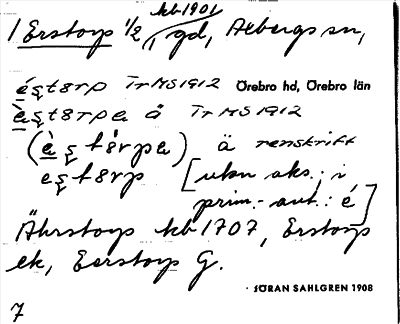 kb 1901
1 Erstorp 1/2, gd, Ælbergs sn,
éstɵrp TrMS1912 Örebro hd, Örebro län
èstɵrpa å TrMS1912
(èstɵ̀rpa) ä renskrift
estɵrp [utan aks. i
prim.-ant.: é]
Ährstorp kb 1707, Erstorp
ek, Eerstorp G.
SÖRAN SAHLGREN 1908
7